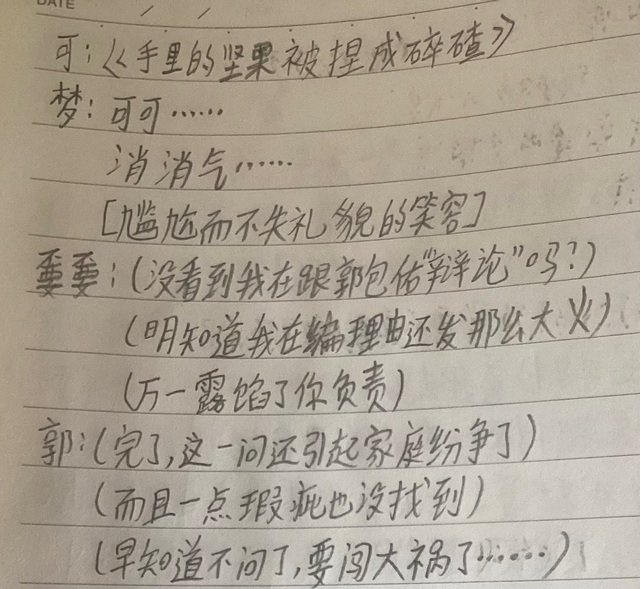 DATE
可:《手里的坚果被捏成碎碴》
梦:可可……
消消气……
[尴尬而不失礼貌的笑容]
:(没看到我在跟郭包佑“辩论”吗?)
(明知道我在编理由还发那么大火)
(万一露馅了你负责)
郭:(完了,这一问还引起家庭纷争了)
(而且一点瑕疵也没找到)
(早知道不问了,要闯大祸了……)